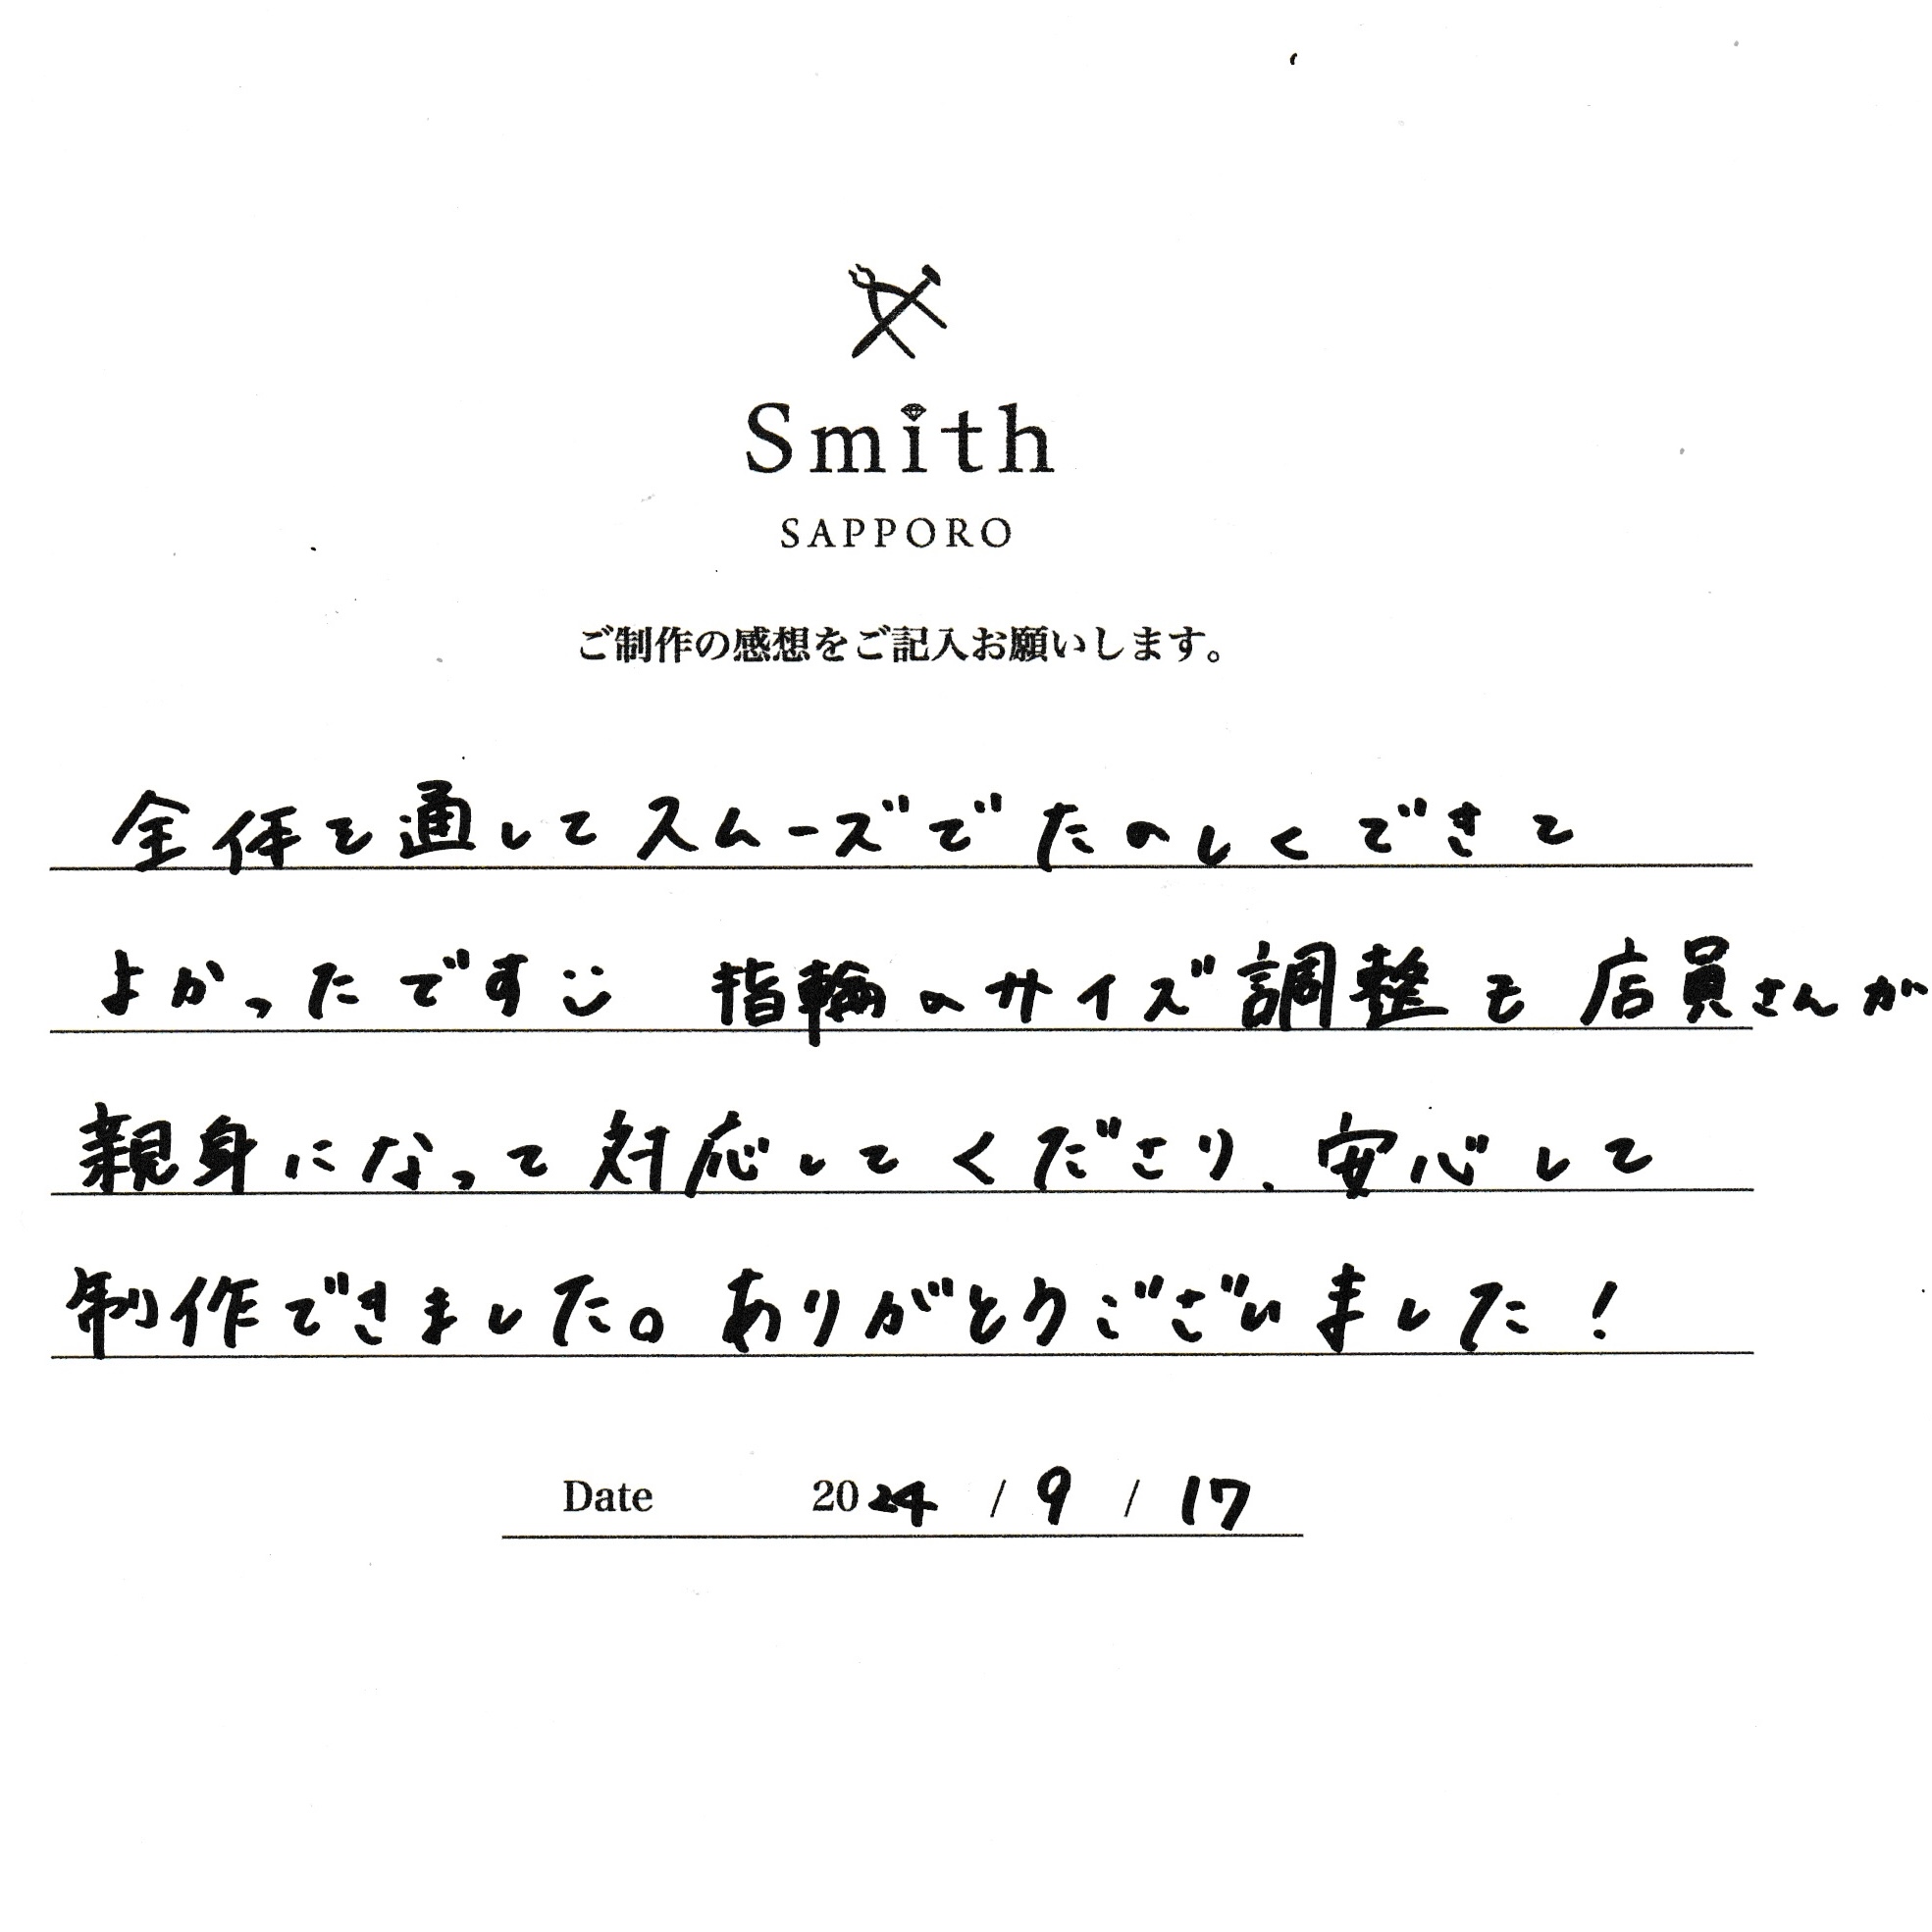 Smith
SAPPORO
ご制作の感想をご記入お願いします。
全体を通してスムーズでたのしくできて
よかったです 指輪のサイズ調整も店員さんが
親身になって対応してくださり、安心して
制作できました。ありがとうございました!
Date 2024 / 9 / 17